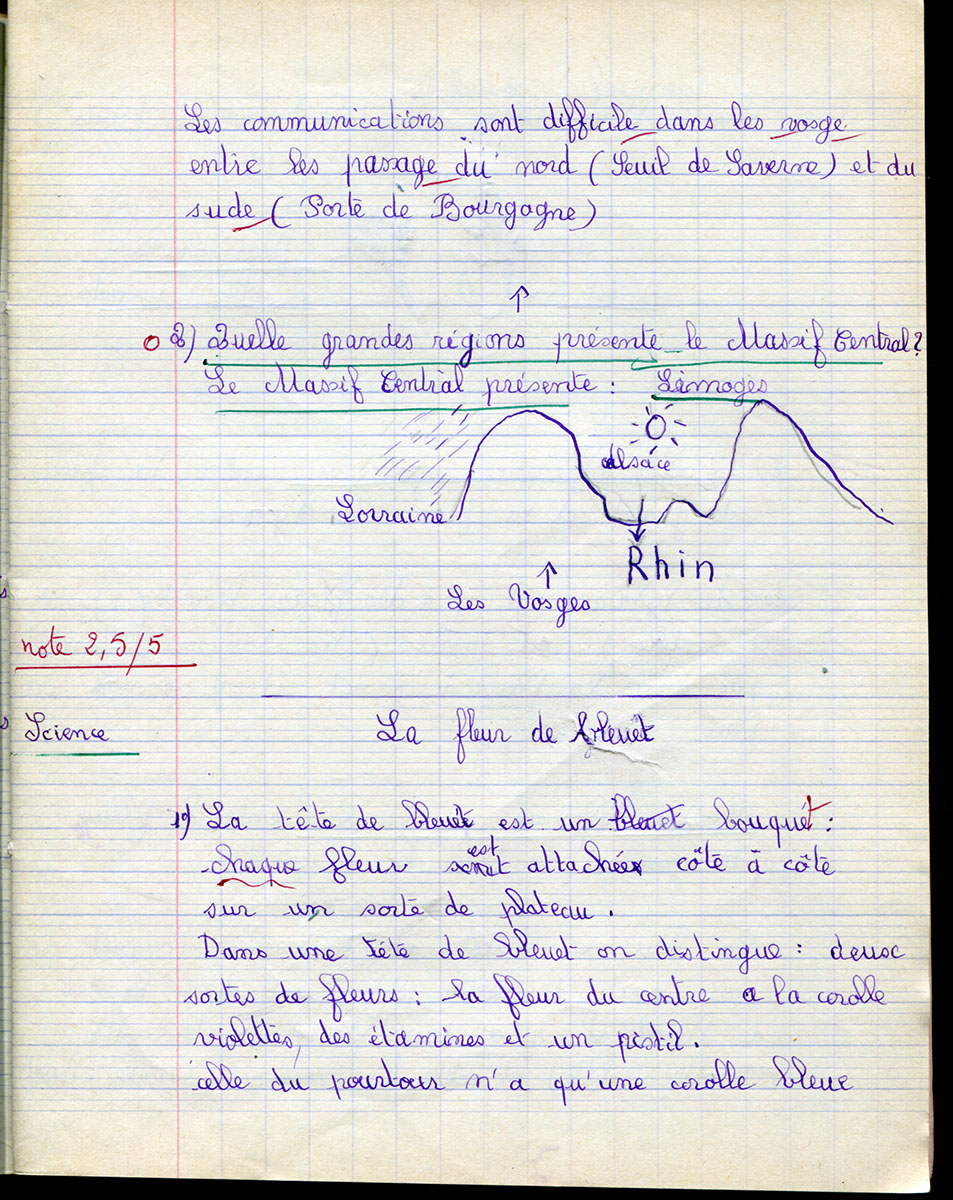 Les communications sont difficile dans les vosge
entre les passage du nord (Seuil de Saverne) et du
sude (Porte de Bourgagne)
↑
2) Quelle grandes régions présente le Massif Central?
Le Massif Central présente : Limoges
Alsace
Lorraine
Rhin
↑
Les Vosges
note 2,5/5
Science
La fleur de bleuet
1°) La tête de bleuet est un bleuet bouquet :
chaque fleur est attachée côte à côte
sur un sorte de plateau.
Dans une tété de bleuet on distingue : deusc
sortes de fleurs : la fleur du centre a la corolle
violettes, des étamines et un pistil.
celle du pourtour n'a qu'une corolle bleue